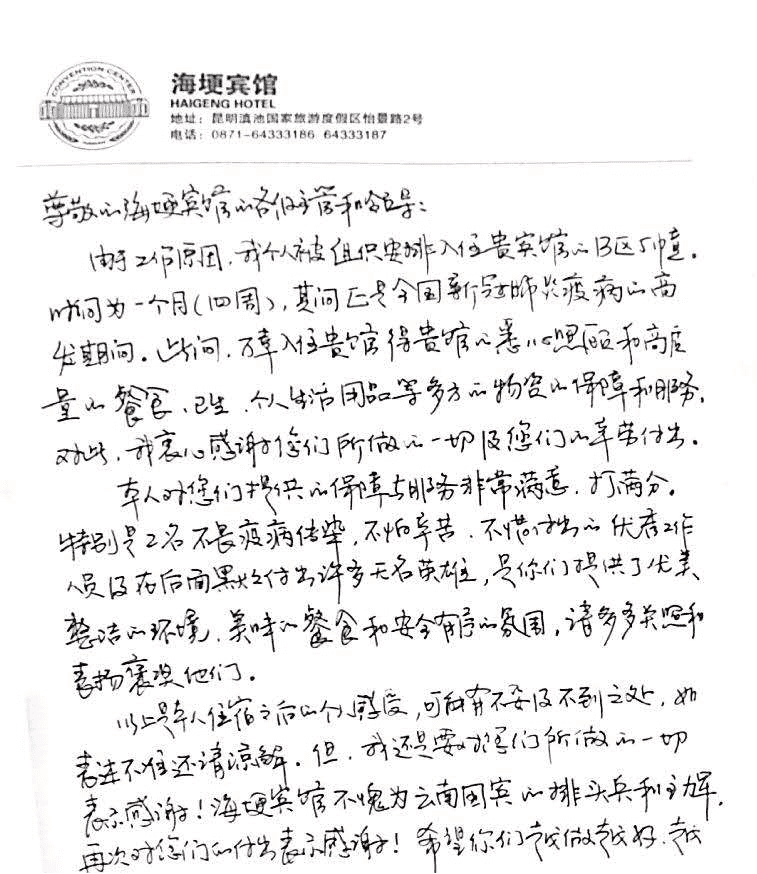 CONVENTION CENTER
海埂宾馆
HAIGENG HOTEL
地址：昆明滇池国家旅游度假区怡景路2号
电话：0871-64333186 64333187
尊敬的海埂宾馆的各位主管和领导：
由于工作原因，我个人被组织安排入住贵宾馆的B区5幢。
时间为一个月（四周），其间正是全国新冠肺炎疫病的高
发期间。此间，万幸入住贵馆得贵馆的悉心照顾和高质
量的餐食、卫生、个人生活用品等多方的物资的保障和服务。
对此，我衷心感谢您们所做的一切及您们的辛劳付出。
本人对您们提供的保障与服务非常满意，打满分。
特别是2名不畏疫病传染，不怕辛苦、不惜付出的优秀工作
人员及在后面默默付出许多无名英雄，是你们提供了优美
整洁的环境、美味的餐食和安全有序的氛围，请多多关照和
表扬褒奖他们。
以上是本人住宿之后的个人感受，可能有不妥及不到之处，如
表述不准还请谅解。但，我还是要对您们所做的一切
表示感谢！海埂宾馆不愧为云南国宾的排头兵和主力军，
再次对您们的付出表示感谢！希望你们越做越好、越